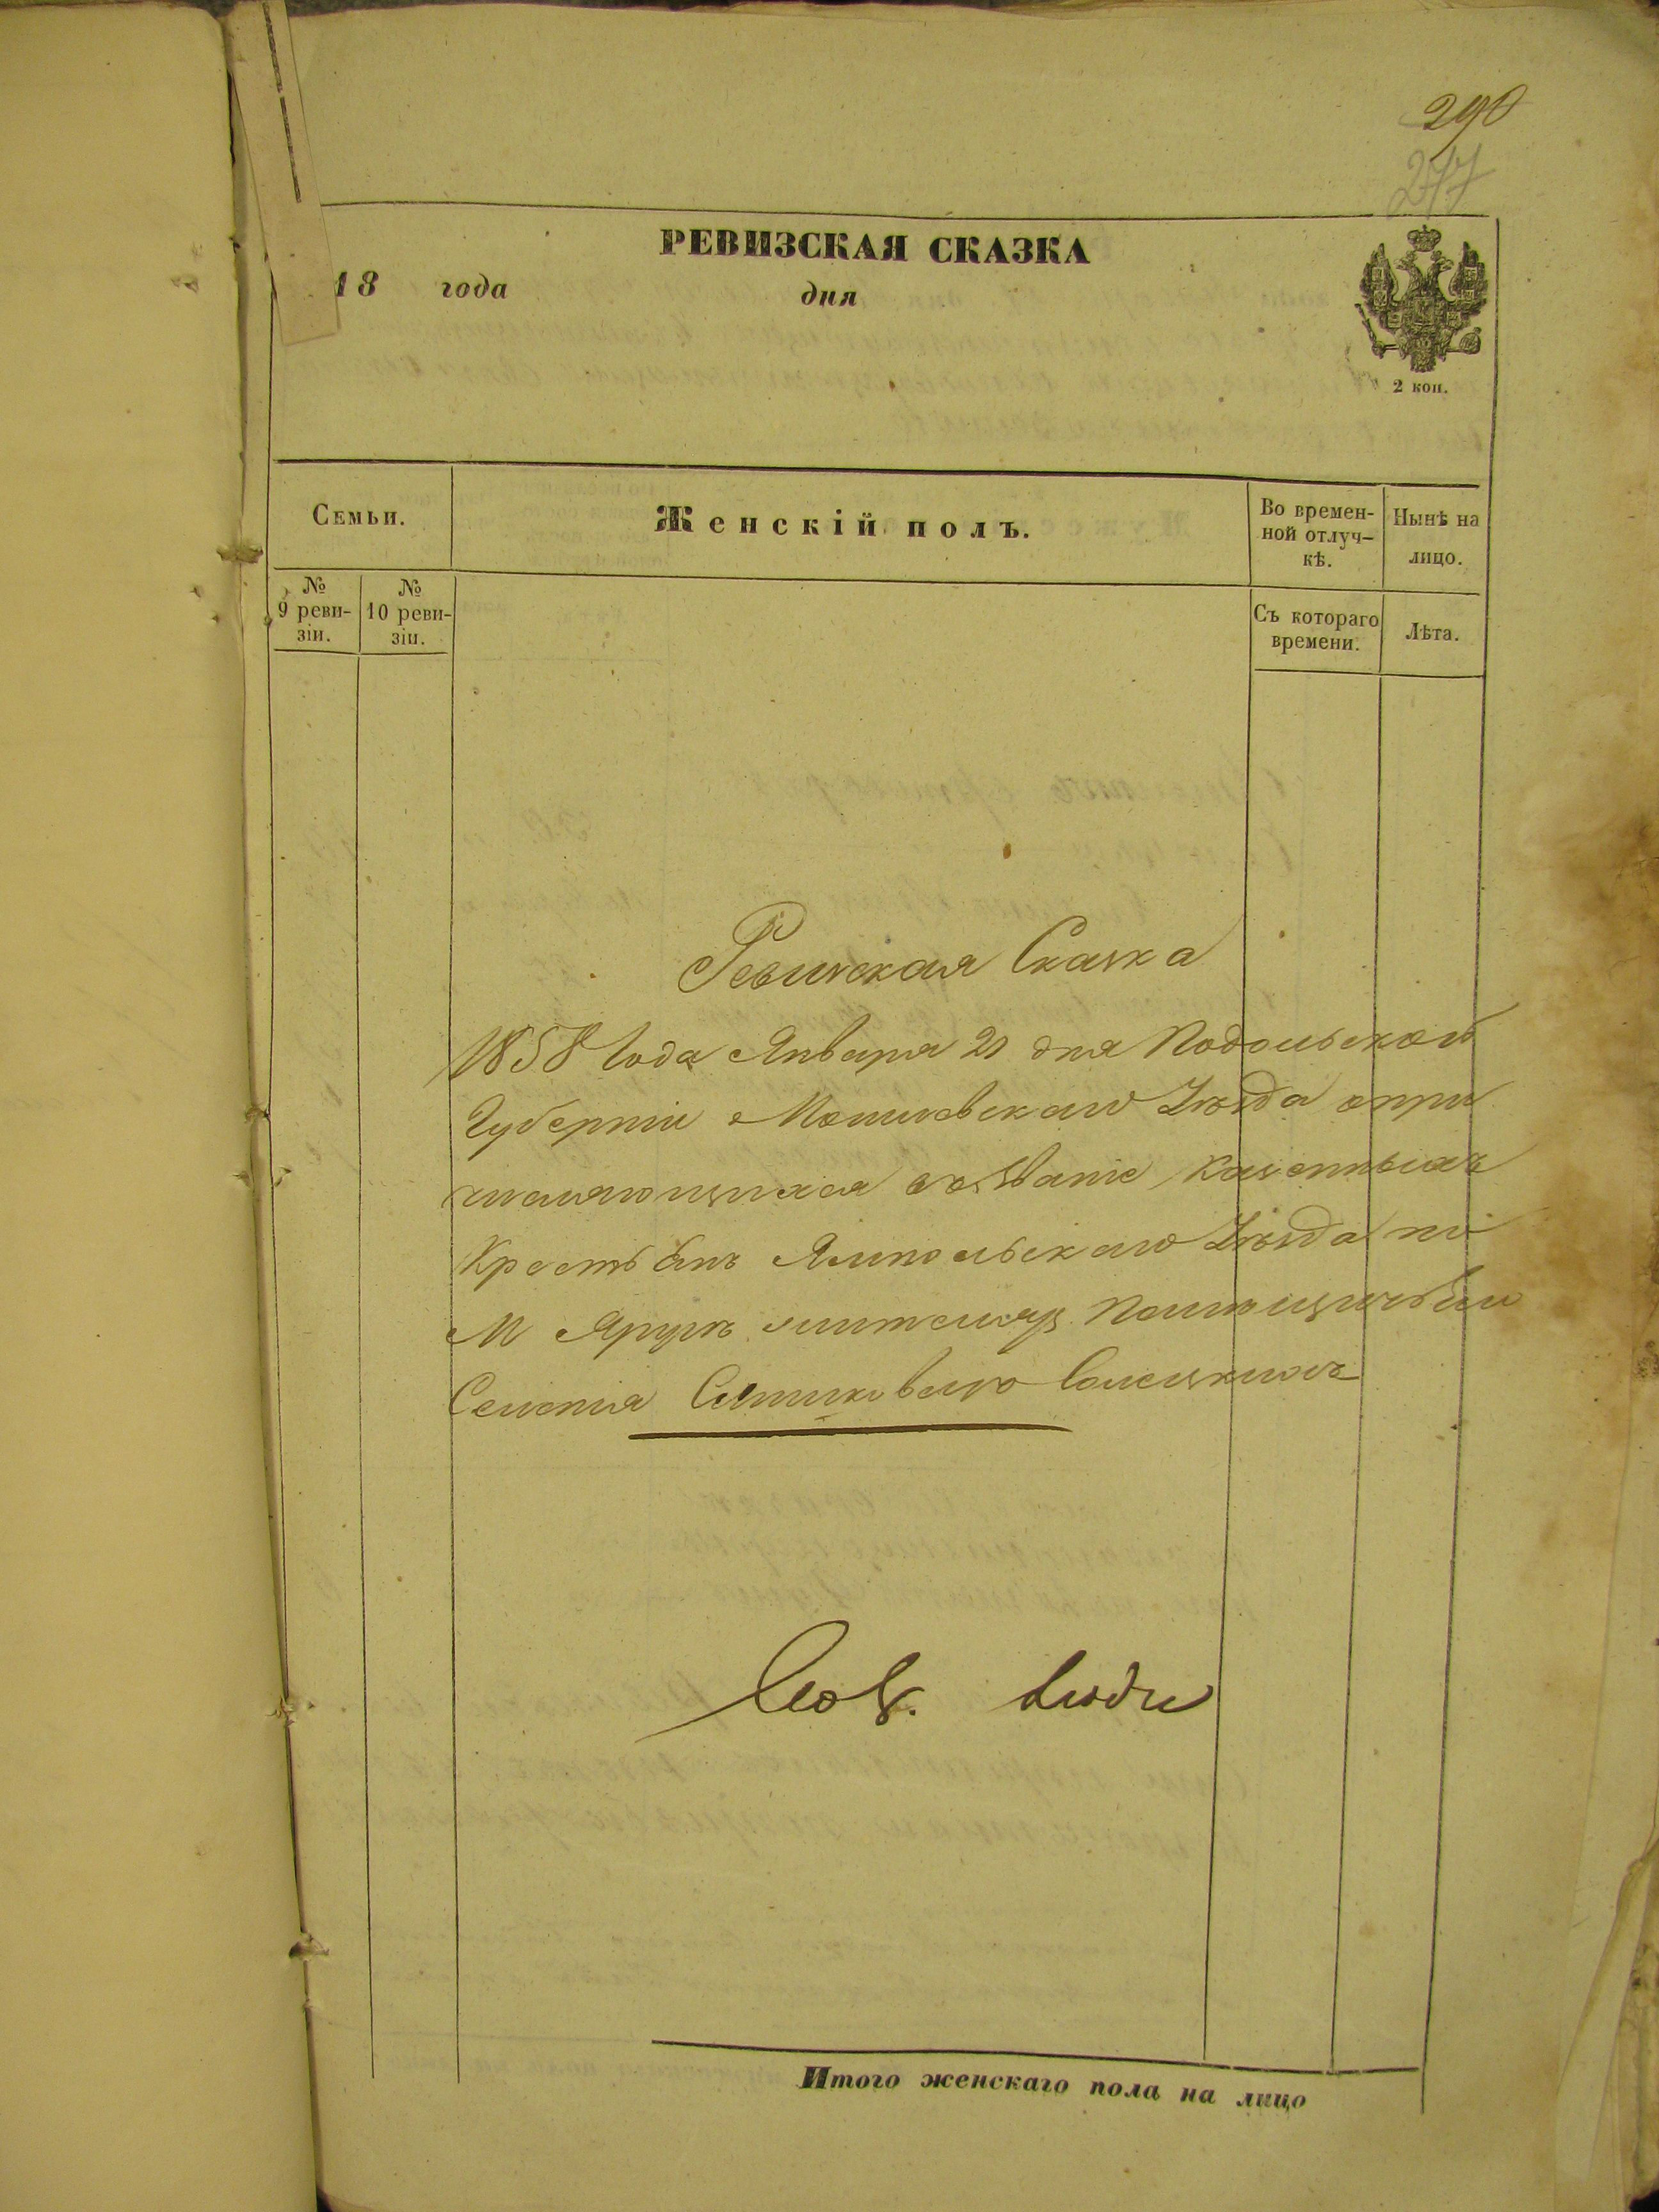 290
277
РЕВИЗСКАЯ СКАЗКА
18 года дня
2 коп.
Семьи.
Женскій полъ.
Во времен-
ной отлуч-
кѣ.
Нынѣ на
лицо.
№
9 реви-
зіи.
№
10 реви-
зіи.
Съ котораго
времени.
Лѣта.
Ревизская Сказка
1858 Года Января дня Подольской
Губерніи Могилевскаго Уѣзда о при
числяющихся въ званіе Казенныхъ
Крестьянъ Ямпольскаго Уѣзда
М Яруги
Селенія
люди
Итого женскаго пола на лицо